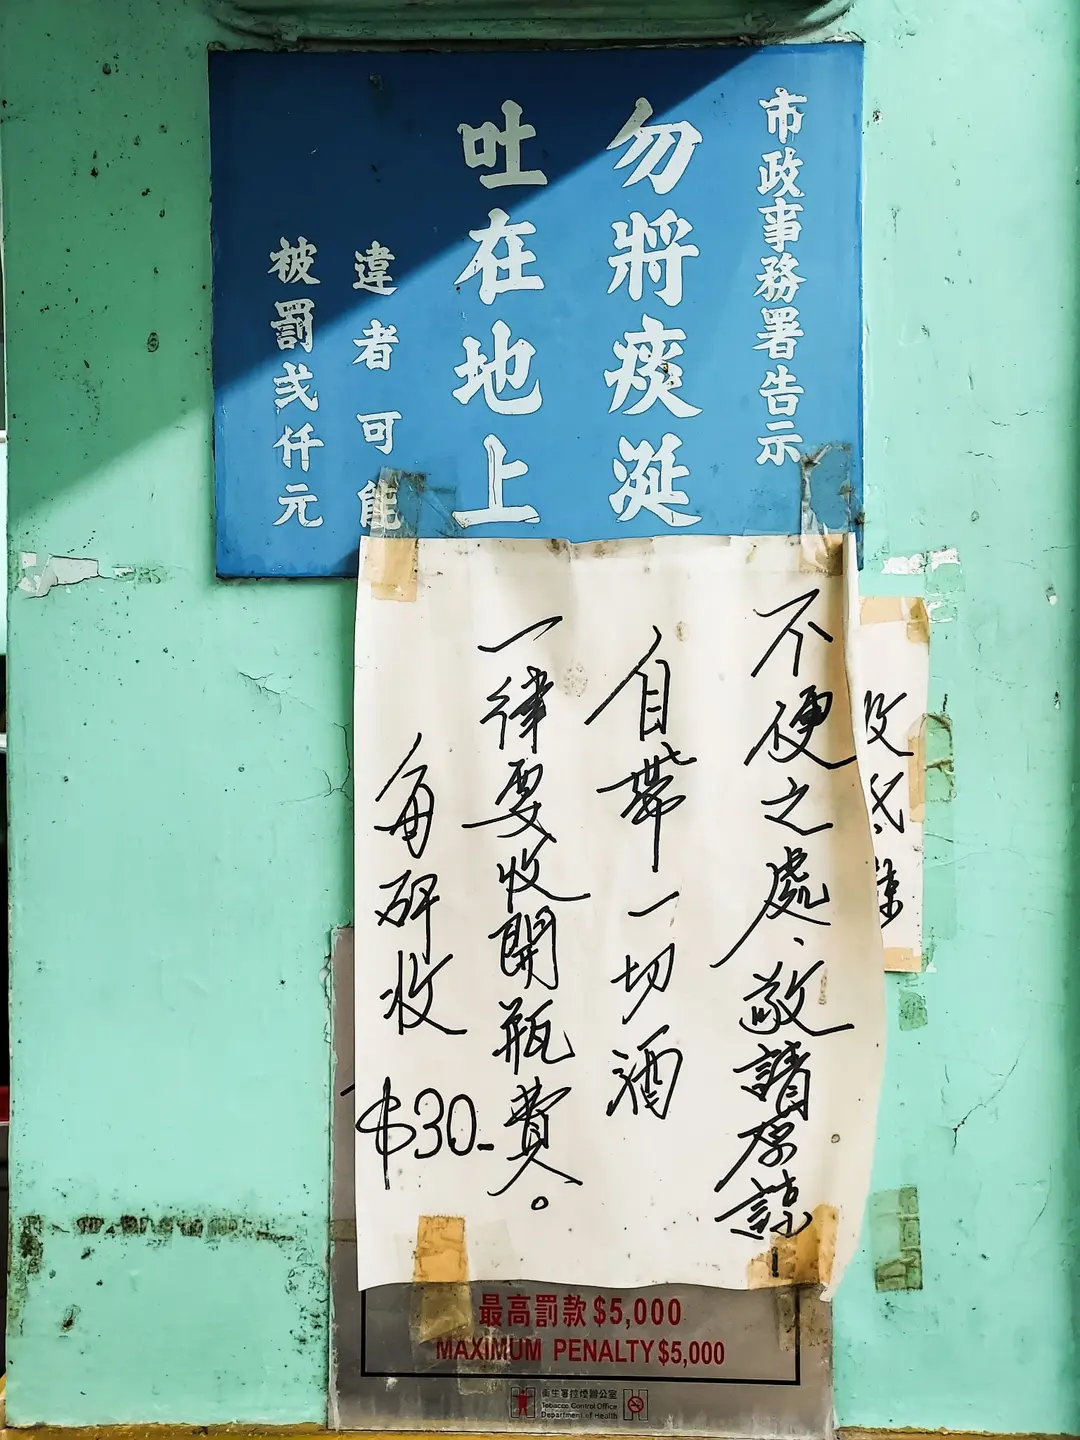 市政事務署告示
勿將痰涎
吐在地上
違者可能
被罰弍仟元
不便之處、敬請原諒！
自帶一切酒
一律要收開瓶費。
每砰收
$30-
最高罰款 $5,000
MAXIMUM PENALTY $5,000
衞生署控煙辦公室
Tobacco Control Office
Department of Health